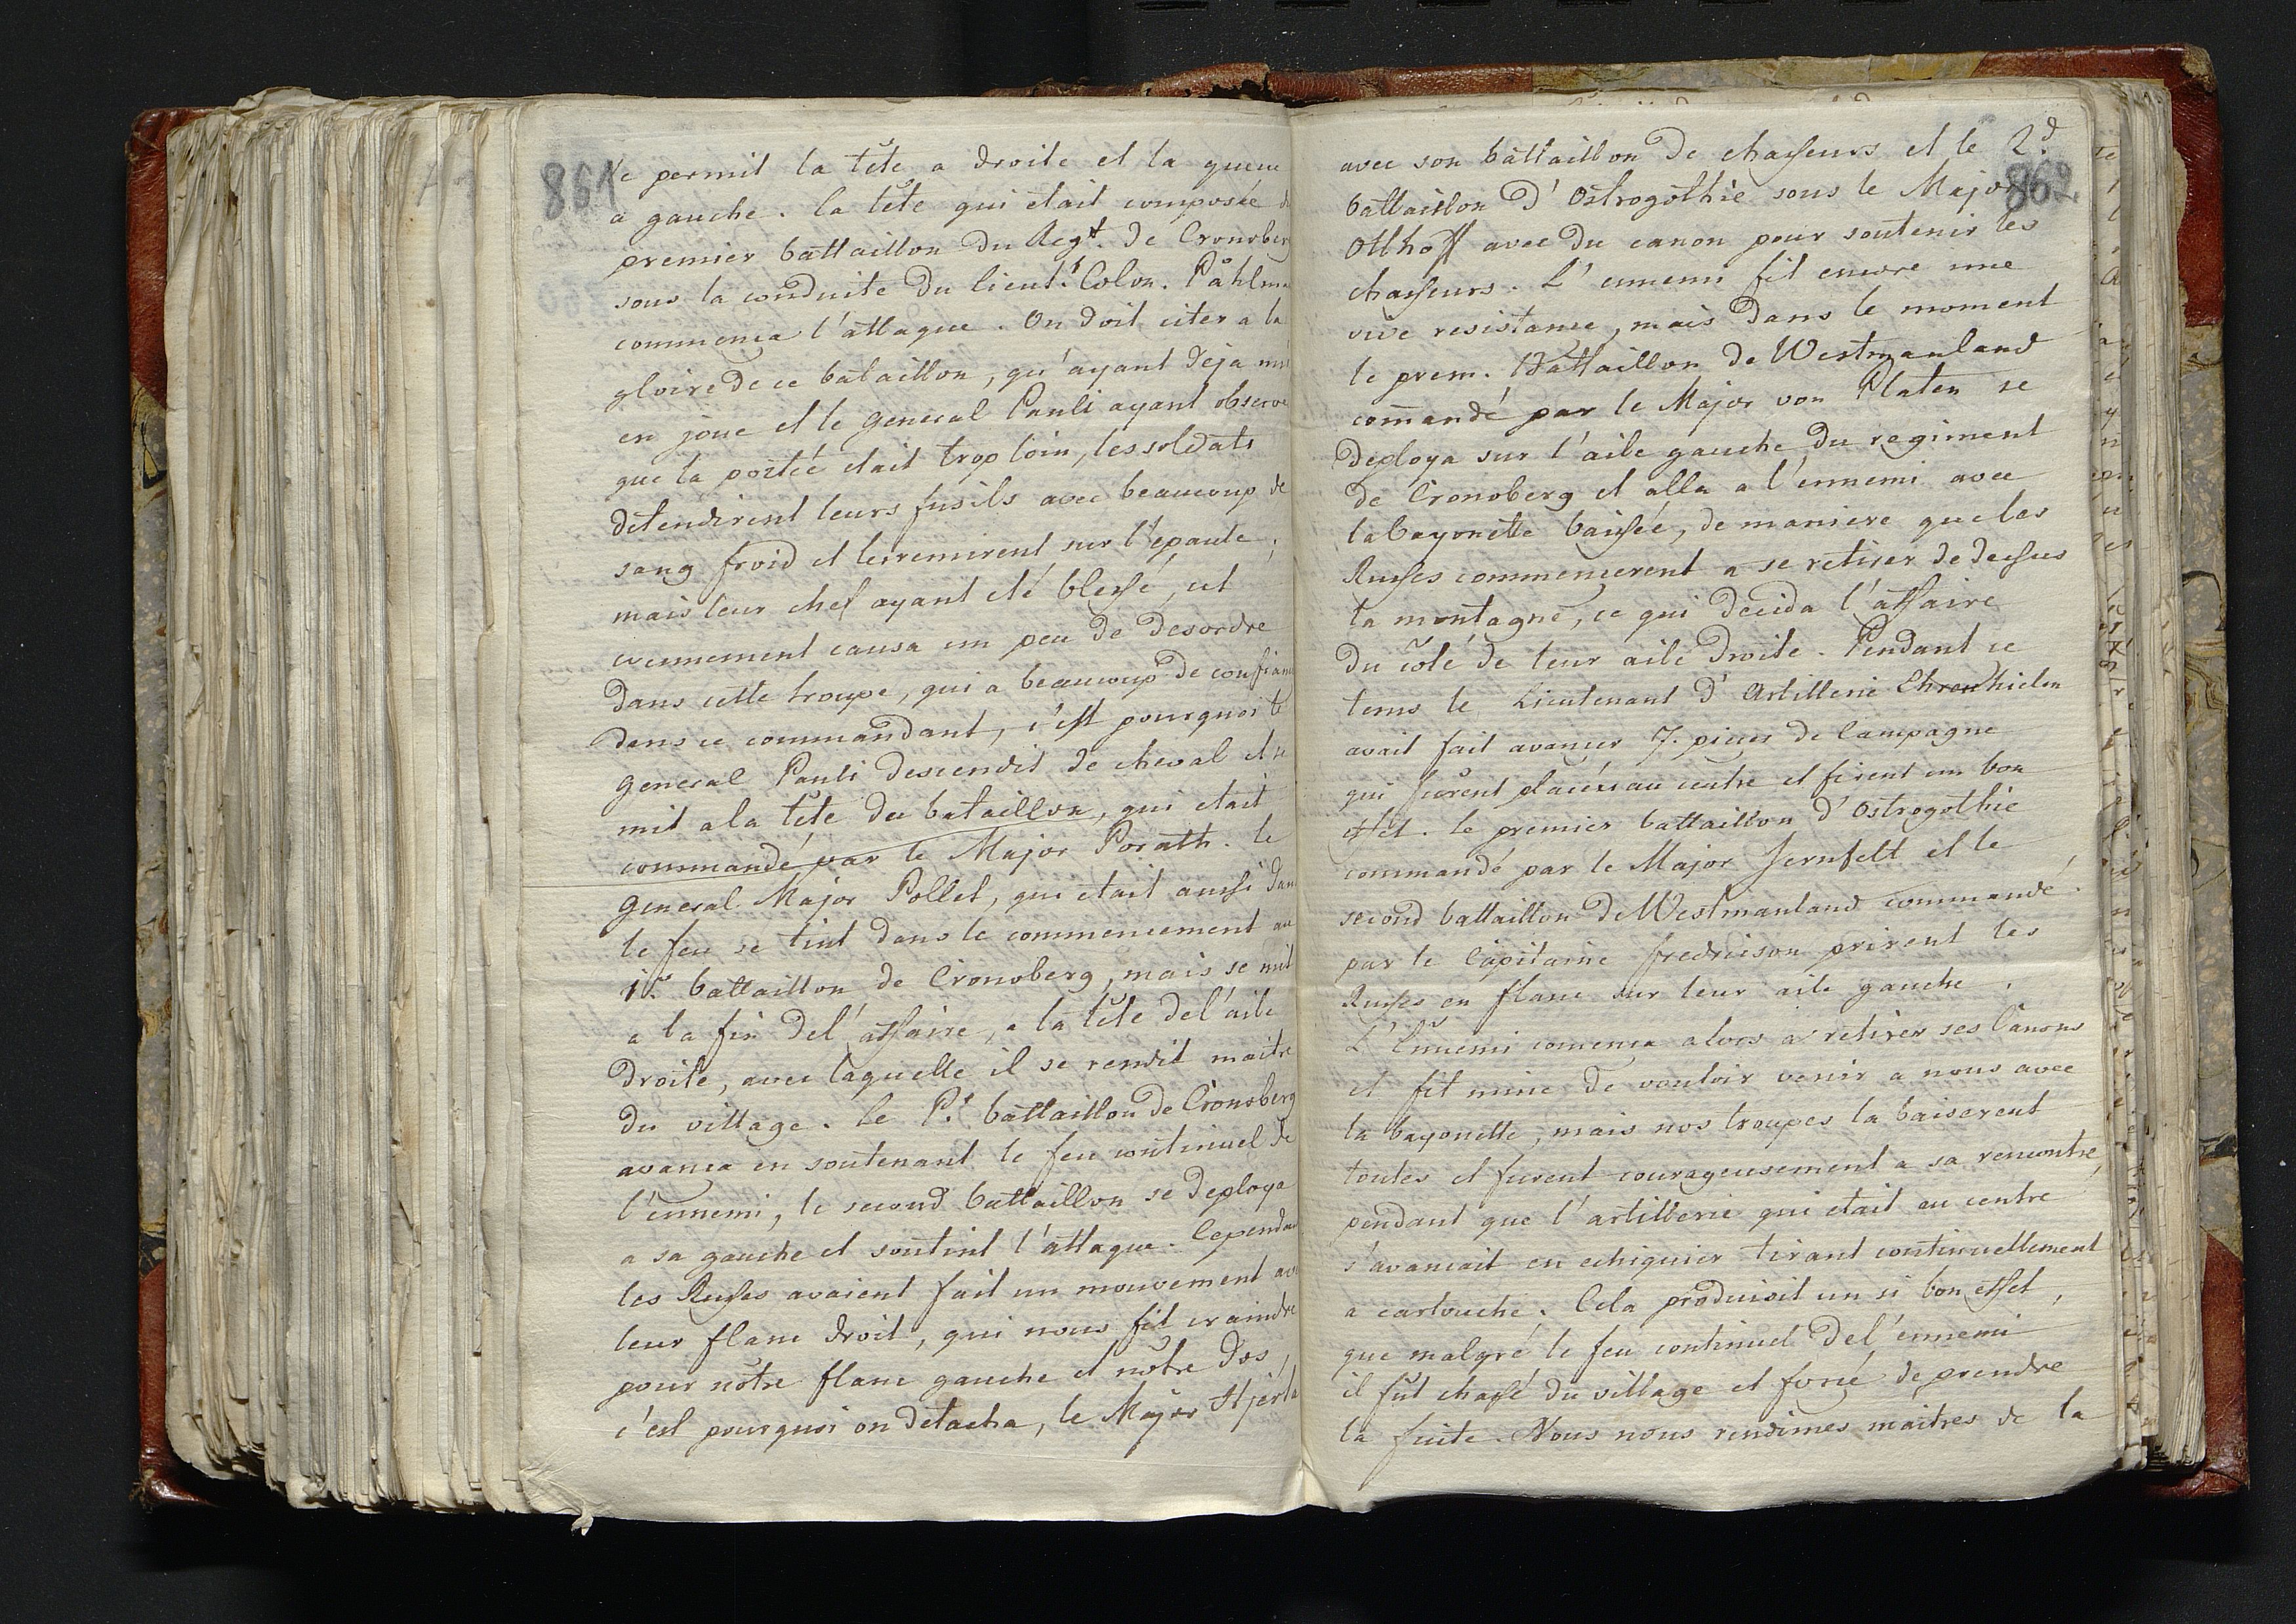 861
le permit la tête a droite et la queue
a gauche. la tête qui etait composée du
premier battaillon du Regt. de Cronoberg
sous la conduite du lieut.t Colon. Påhlm
commença l'attaque. On doit citer a la
gloire de ce bataillon, qu'ayant deja mis
en joue et le general Pauli ayant observé
que la portée etait trop loin, les soldats
detendirent leurs fusils avec beaucoup de
sang froid et les remirent sur l'epaule;
mais leur chef ayant eté blessé, cet
evennement causa un peu de desordre
dans cette troupe, qui a beaucoup de confiance
dans ce commandant, c'est pourquoi le
general Pauli descendit de cheval et se
mit a la tête du bataillon, qui etait
commandé par le Major Porath. le
general Major Pollet, qui etait aussi dans
le feu se tint dans le commencement au
1r. battaillon de Cronoberg, mais se mit
a la fin de l'affaire, a la tête de l'aile
droite, avec laquelle il se rendit maitre
du village. Le P.r battaillon de Cronoberg
avança en soutenant le feu continuel de
l'ennemi, le second battaillon se deploya
a sa gauche et soutint l'attaque. Cependant
les Russes avaient fait un mouvement avec
leur flanc droit, qui nous fit craindre
pour nôtre flanc gauche et nôtre dos,
c'est pourquoi on detacha, le Major Hjerta
862
avec son battaillon de chasseurs et le 2d.
battaillon d'Ostrogothie sous le Major
Otthoff avec du canon pour soutenir les
chasseurs. L'ennemi fit encore une
vive resistance, mais dans le moment
le prem. Battaillon de Westmanland
com̄andé par le Major von Platen se
deploya sur l'aile gauche du regiment
de Cronoberg et alla a l'ennemi avec
la bayonette baissée, de maniere que les
Russes commencerent a se retirer de dessus
la montagne, ce qui decida l'affaire
du côté de leur aile droite. Pendant ce
tems le Lieutenant d'Artillerie Ehrenhielm
avait fait avancer 7. pieces de Campagne
qui furent placées au centre et firent un bon
effet. le premier battaillon d'Ostrogothie
commandé par le Major Jernfelt et le
second battaillon de Westmanland commandé
par le Capitaine fredricson prirent les
Russes en flanc sur leur aile gauche.
L'Ennemi comença alors a retirer ses Canons
et fit mine de vouloir venir a nous avec
la bayonette, mais nos troupes la baiserent
toutes et furent courageusement a sa rencontre,
pendant que l'artillerie qui etait au centre
s'avancait en echiquier tirant continuellement
a cartouche. Cela produisit un si bon effet,
que malgré le feu continuel de l'ennemi
il fut chassé du village et forcé de prendre
la fuite. Nous nous rendimes maitres de la